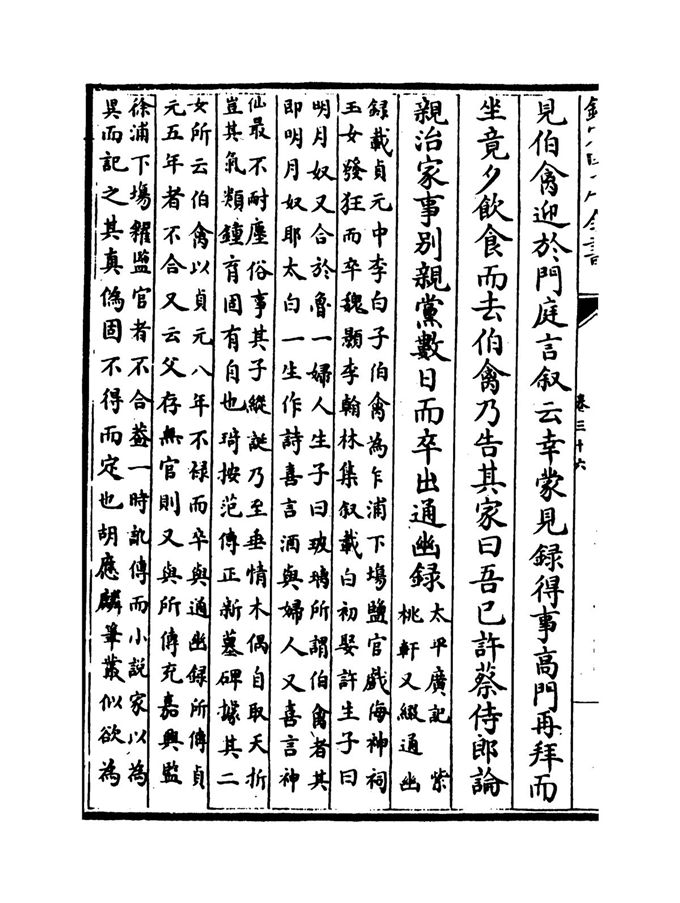 卷三十六
見伯禽迎於門庭言叙云幸蒙見録得事高門再拜而
坐竟夕飲食而去伯禽乃告其家曰吾已許蔡侍郎論
親治家事别親黨數日而卒出通幽録
太平廣記　紫
桃軒又綴通幽
録載貞元中李白子伯禽為乍浦下塲鹽官戲侮神祠
玉女發狂而卒魏顥李翰林集叙載白初娶許生子曰
明月奴又合於魯一婦人生子曰玻璃所謂伯禽者其
即明月奴耶太白一生作詩喜言酒與婦人又喜言神
仙最不耐塵俗事其子縱誕乃至垂情木偶自取夭折
豈其氣類鍾育固有自也琦按范傳正新墓碑據其二
女所云伯禽以貞元八年不禄而卒與通幽録所傳貞
元五年者不合又云父存無官則又與所傳充嘉興監
徐浦下塲糴監官者不合葢一時訛傳而小説家以為
異而記之其真偽固不得而定也胡應麟筆叢似欲為